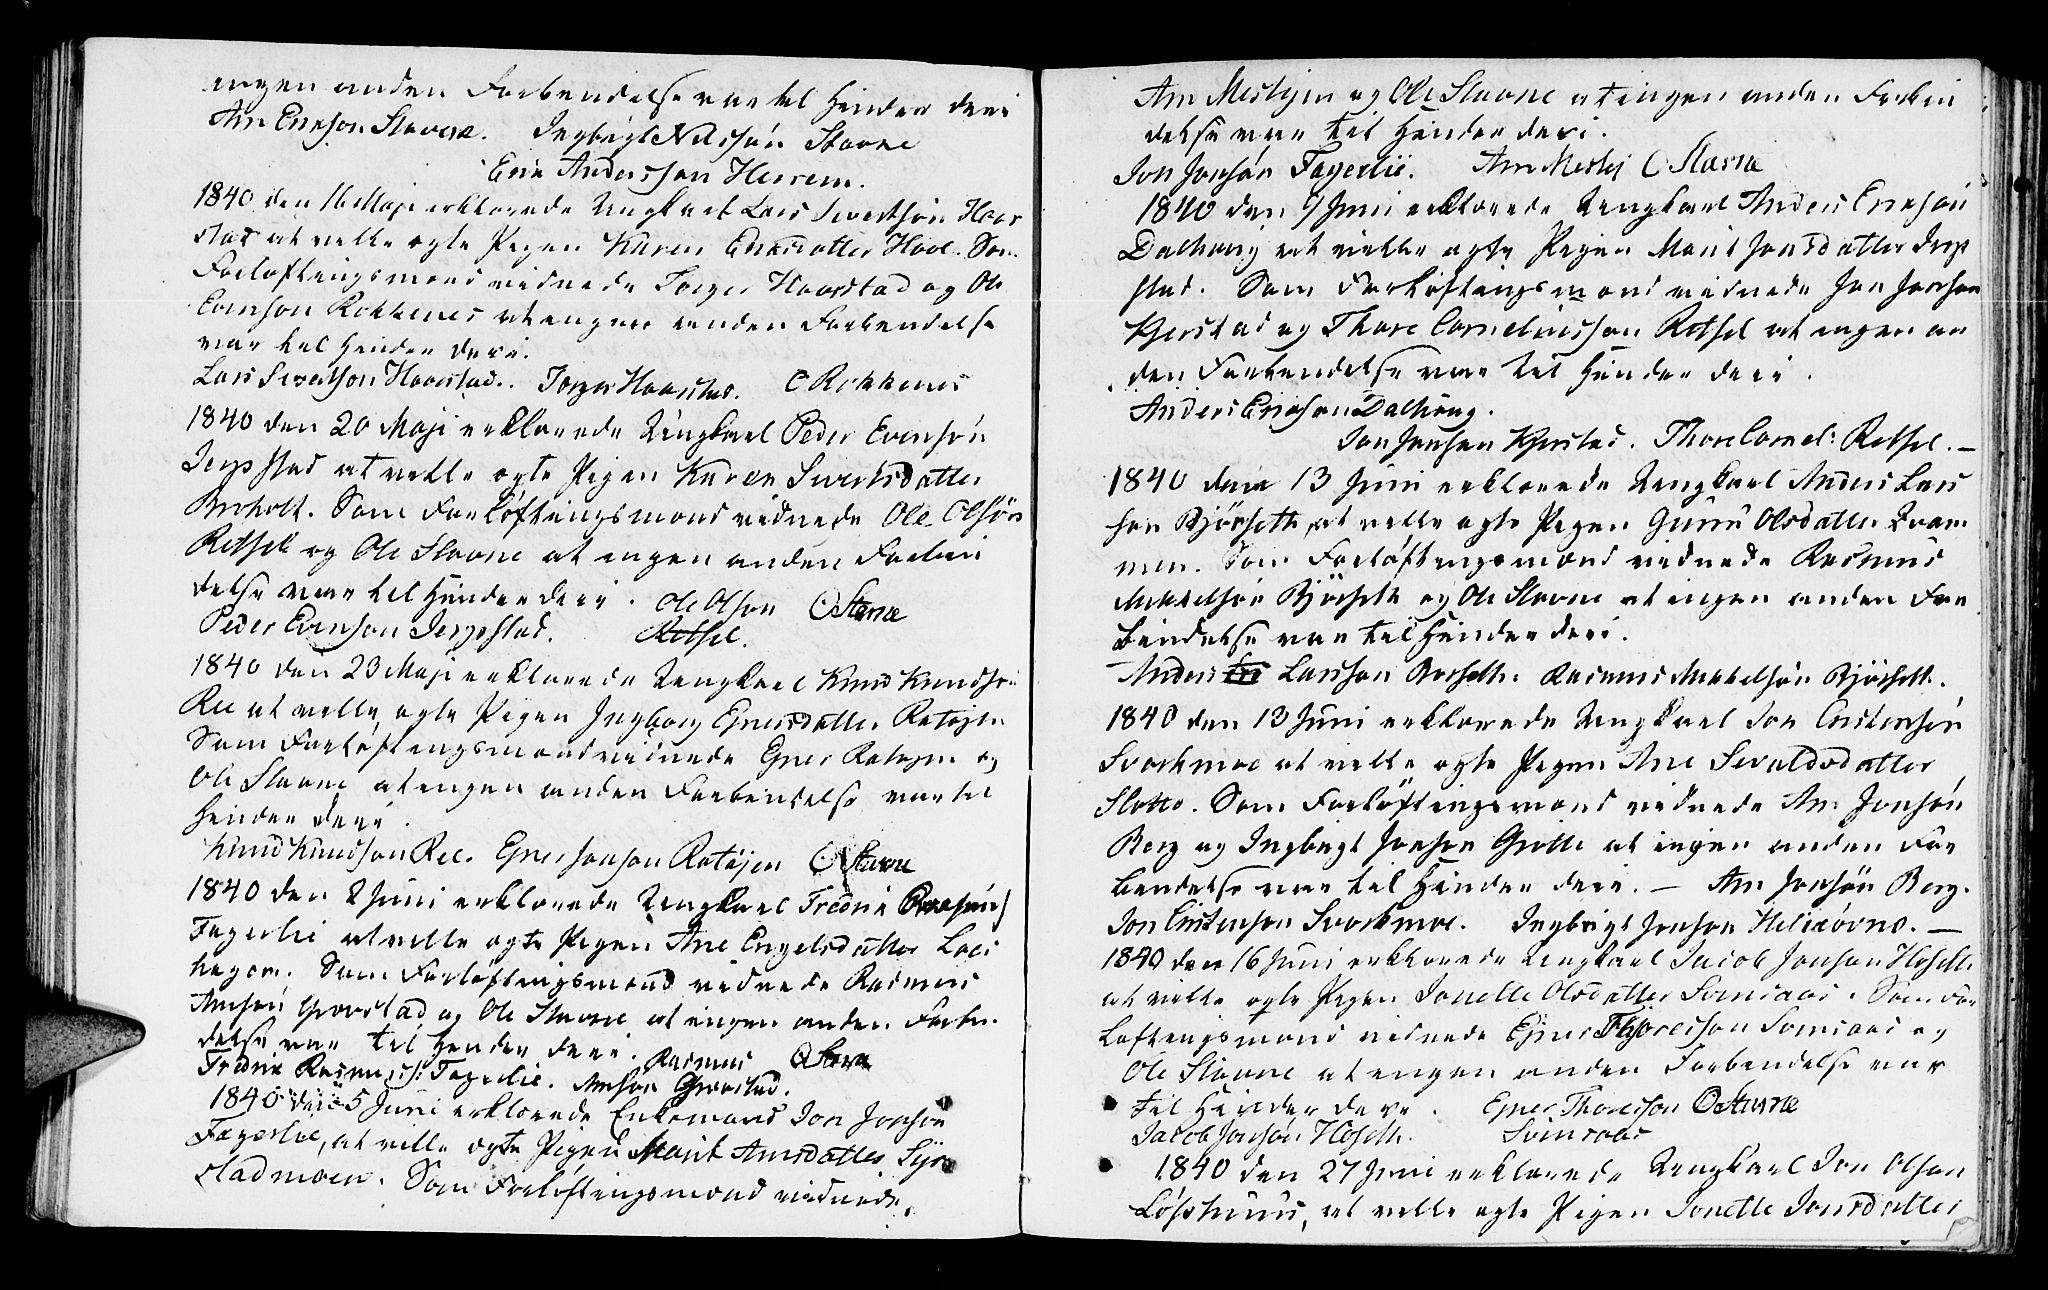 ingen anden Forbindelse var til Hinder deri
Arn Ericson Stavne. Ingbrigt Nilssøn Stavne
Eric Andersson Herrem.
1840 den 16 Maji erklærede Ungkarl Lars Sivertsøn Haar
stad at ville egte Pigen Karen Ericsdatter Hoel. Som
Forløftingsmænd vidnede Torger Haarstad og Ole
Evenson Rokkenes at ingen anden Forbindelse
var til Hinder deri.
Lars Sivertson Haarstad. Torger Haarstad. O Rokkenes
1840 den 20 Maji erklærede Ungkarl Peder Evensøn
Jerpstad at ville egte Pigen Karen Sivertsdatter
Arnholt. Som Forløftingsmænd vidnede Ole Olsøn
Retsel og Ole Stavne at ingen anden Forbin
delse var til Hinder deri. Ole Olson O Stavne
Peder Evenson Jerpstad. Retsel.
1840 den 23 Maji erklærede Ungkarl Knud Knudsøn
Ree at ville egte Pigen Ingborg Ejnersdatter Rotøjen
Som Forløftingsmænd vidnede Ejner Rotøjen og
Ole Stavne at ingen anden Forbindelse var til
Hinder deri.
Knud Knudson Ree. Ejner Jonson Rotøjen O Stavne
1840 den 2 Juni erklærede Ungkarl Fredrik
Fagerlie at ville egte Pigen Ane Engelsdatter Lars
hagen. Som Forløftingsmænd vidnede Rasmus
Arnsøn Grovstad og Ole Stavne at ingen anden Forbin
delse var til Hinder deri. Rasmus O Stavne
Fredrik Rasmuss: Fagerlie. Arnson Grovstad.
1840 den 5 Juni erklærede Enkemand Jon Jonson
Fagerlie, at ville egte Pigen Marit Arnsdatter Syr
stadmoen. Som Forløftingsmænd vidnede
Arn Meslyen og Ole Stavne at ingen anden Forbin
delse var til Hinder deri.
Jon Jonsøn Fagerlie. Arn Meslej O Stavne
1840 den 9 Juni erklærede Ungkarl Anders Ericsøn
Dalhaug at ville egte Pigen Marit Jonsdatter Jerp
stad. Som Forløftingsmænd vidnede Jon Jonson
Kjerstad og Thore Corneliusson Retsel at ingen an
den Forbindelse var til Hinder deri.
Anders Ericson Dalhaug.
Jon Jonsen Kjerstad. Thore Cornel: Retsel. —
1840 den 13 Juni erklærede Ungkarl Anders Lars
son Bjørseth, at ville egte Pigen Guru Olsdatter Kvam
men. Som Forløftingsmænd vidnede Rasmus
Mikkelsøn Bjørseth og Ole Stavne at ingen anden For
bindelse var til Hinder deri.
Anders Larsson Bjørseth. Rasmus Mikkelsøn Bjørseth.
1840 den 13 Juni erklærede Ungkarl Jon Cristensøn
Svorkmoe at ville egte Pigen Ane Sevaldsdatter
Slotte. Som Forløftingsmænd vidnede Arn Jonsøn
Berg og Ingbrigt Jonson Grotte at ingen anden For
bindelse var til Hinder deri. — Arn Jonsøn Berg.
Jon Cristenson Svorkmoe. Ingbrigt Jonson —
1840 den 16 Juni erklærede Ungkarl Jacob Jonson Hoseth
at ville egte Pigen Jonette Olsdatter Svinsaas. Som For
løftingsmænd vidnede Ejner Thoresson Svinsaas og
Ole Stavne at ingen anden Forbindelse var
til Hinder deri. Ejner Thoresson O Stavne
Jacob Jonsøn Hoseth. Svinsaas
1840 den 27 Juni erklærede Ungkarl Jon Olson
Løfshuus, at ville egte Pigen Jonette Jonsdatter